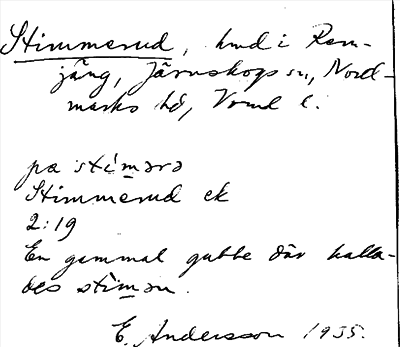 Stimmerud, hmd i Rem-
jäng, Järnskogs sn, Nord-
marks hd, Vrml l.
pa stìmərə
Stimmerud ek
2:19
En gammal gubbe där kalla-
des stìmən.
E. Andersson 1935.